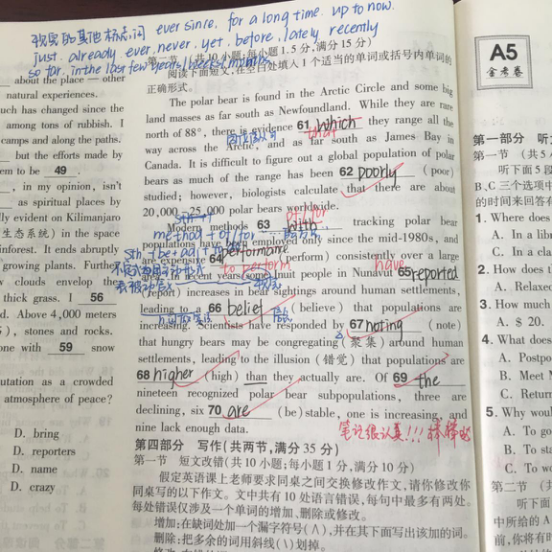 现完的其他标志词 ever since. for a long time. up to now.
just. already. ever. never. yet. before. lately. recently
so far. in the last few years/weeks/months
第二节 (共10小题;每小题1.5分,满分15分)
阅读下面短文,在空白处填入1个适当的单词或括号内单词的
正确形式。
The polar bear is found in the Arctic Circle and some big
land masses as far south as Newfoundland. While they are rare
north of 88°, there is evidence 61 which they range all the
that
way across the Arctic, and as far south as James Bay in
Canada. It is difficult to figure out a global population of polar
bears as much of the range has been 62 poorly (poor)
studied; however, biologists calculate that there are about
20,000-25,000 polar bears worldwide.
of/for
Modern methods 63 with tracking polar bear
method + of/for
populations have been employed only since the mid-1980s, and
are expensive 64 performance (perform) consistently over a large
to perform
area. In recent years some that people in Nunavut 65 reported
have
(report) increases in bear sightings around human settlements,
leading to a 66 belief (believe) that populations are
increasing. Scientists have responded by 67 noting (note)
that hungry bears may be congregating(聚集)around human
settlements, leading to the illusion (错觉) that populations are
68 higher (high) than they actually are. Of 69 the
nineteen recognized polar bear subpopulations, three are
declining, six 70 are (be)stable, one is increasing, and
nine lack enough data.
笔记很认真!!! 棒棒的
第四部分 写作(共两节,满分35分)
第一节 短文改错(共10小题;每小题1分,满分10分)
假定英语课上老师要求同桌之间交换修改作文,请你修改你
同桌写的以下作文。文中共有10处语言错误,每句中最多有两处。
每处错误仅涉及一个单词的增加、删除或修改。
增加:在缺词处加一个漏字符号(∧),并在其下面写出该加的词。
删除:把多余的词用斜线(\)划掉。
about the place — other
natural experiences.
uch has changed since the
among tons of rubbish. I
camps and along the paths.
but the efforts made by
em to be 49
, in my opinion, isn't
as spiritual places by
lly evident on Kilimanjaro
生态系统) in the space
inforest. It ends abruptly
growing plants. Further
clouds envelop the
thick grass. I 56
d. Above 4,000 meters
), stones and rocks.
one with 59 snow
utation as a crowded
atmosphere of peace?
D. bring
D. reporters
D. name
D. crazy
A5
金考卷
第一部分 听力
第一节 (共5
听下面5段
B、C三个选项中
的时间来回答有
1. Where does
A. In a libr
C. In a cla
2. How does t
A. Relaxed
3. How much
A. $ 20.
4. What does
A. Postpon
B. Meet M
C. Return
5. Why woul
A. To go
B. To sta
C. To wo
第二节 (共
听下面
中所给的A
前,你将有时